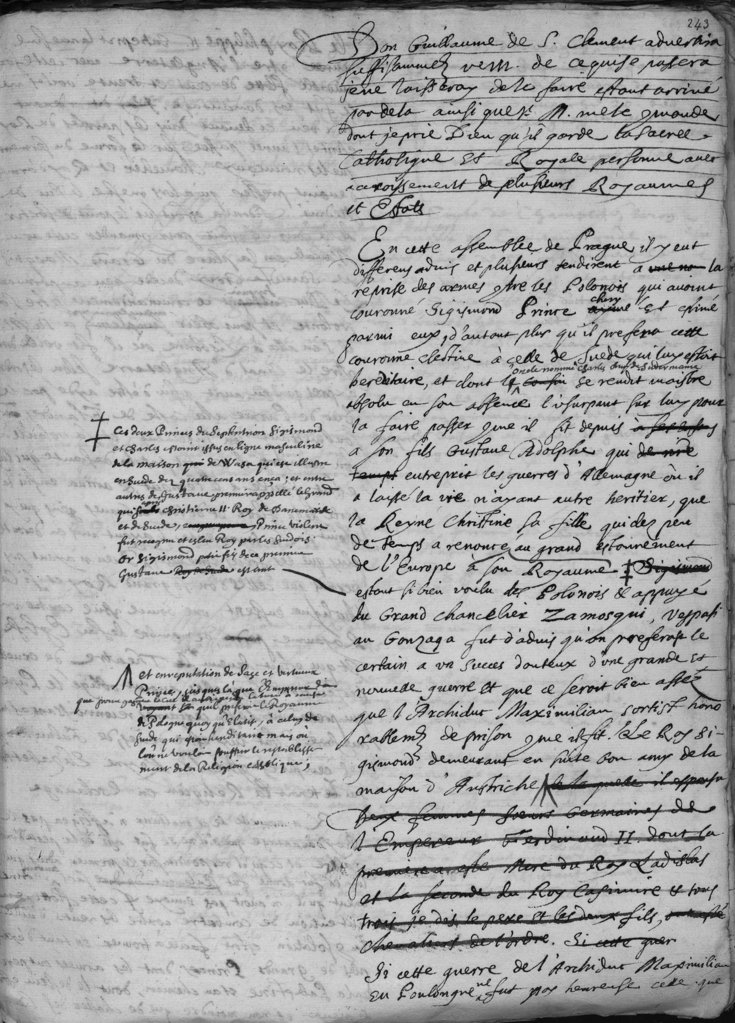 243
Don Guillaume de S. Clement advertira
suffisamment de ce qui se passera
je ne laisseray de le faire estant arrivé
par dela ainsi que V. M. me le commande
dont je prie Dieu qu'il garde la sacree
Catholique et Royale personne avec
accroissement de plusieurs Royaumes
et Estats
En cette assemblee de Prague il y eut
differens advis et plusieurs tendirent a la
reprise des armes contre les Polonois qui avoient
couronné Sigismond Prince chery et estimé
parmi eux, d'autant plus qu'il prefera cette
couronne elective à celle de Suede qui luy estoit
hereditaire, et dont le oncle nommé Charles Duc de Sudermanie se rendit maistre
absolu en son absence l'usurpant sur luy pour
la faire passer comme il fit depuis
a son fils Gustave Adolphe qui
entreprit les guerres d'Allemagne où il
a laissé la vie n'ayant autre heritier, que
la Reyne Christine sa fille qui depuis peu
de temps a renoncé au grand estonnement
de l'Europe a son Royaume ‡ Sigismond
estant si bien voulu des Polonois & appuyé
du Grand Chancelier Zamosqui, Vespasi
an Gonzaga fut d'advis qu'on preferast le
certain a un succes douteux d'une grande et
nouvelle guerre et que ce seroit bien assés
que l'Archiduc Maximilian sortist hono
rablemt de prison comme il fit. Le Roy Si
gismond demeurant en suite bon amy de la
maison d'Austriche de laquelle il espousa
deux femmes sœurs Germaines de
l'Empereur Ferdinand II. dont la
premiere a esté Mere du Roy Ladislas
et la seconde du Roy Casimire & tous
trois je dis le pere et les deux fils, ont esté
Chevaliers de l'ordre. Si cette guer
Si cette guerre de l'Archiduc Maximilian
en Poulongne ne fut pas heureuse celle que
‡ Ces deux Princes de Septentrion Sigismond
et Charles estoient issus en ligne masculine
de la maison de Wasa qui est illustre
en Suede depuis quatre cens ans en ça; et entre
autres de Gustave premier appellé le Grand
qui Christierne II Roy de Danemark
et de Suede, Prince violent
fut recogneu et esleu Roy par les Suedois.
Or Sigismond petit fils de ce premier
Gustave estant
et en reputation de sage et vertueux
Prince,
que preferer le Royaume
de Pologne quoy qu'electif, à celuy de
Suede qui estoit hereditaire mais ou
l'on ne vouloit souffrir le restablisse
ment de la Religion Catholique,